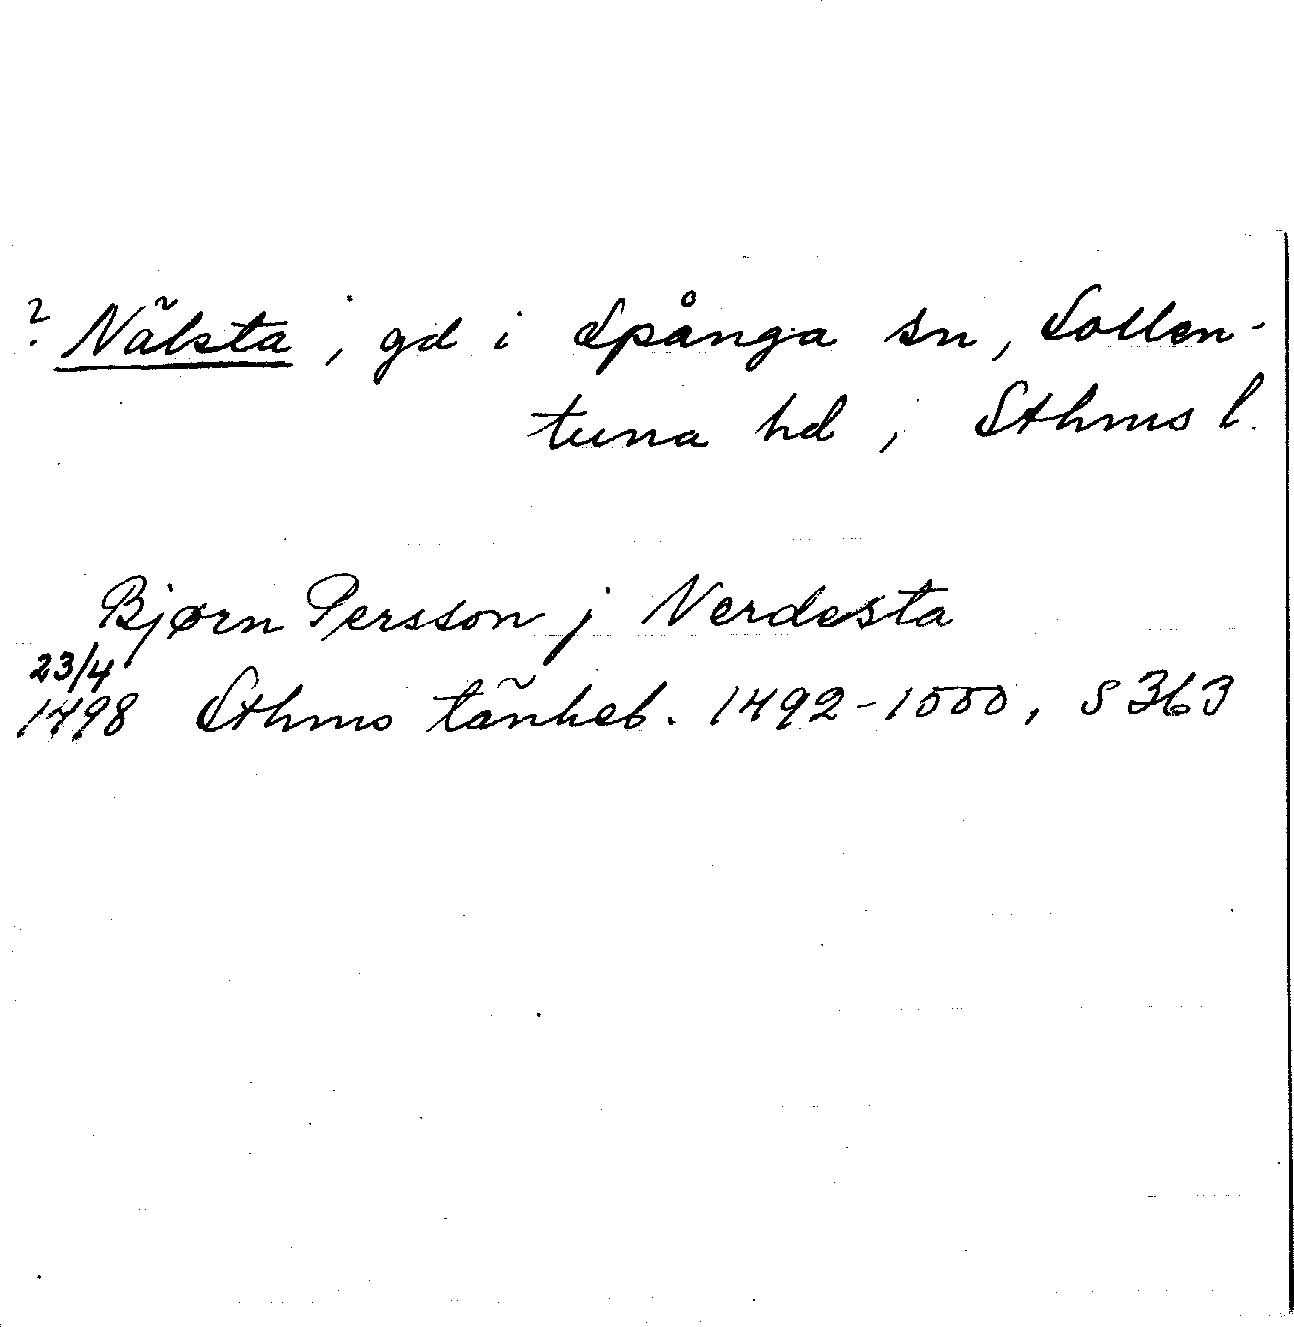 ? Nälsta, gd i Spånga sn, Sollen-
tuna hd, Sthms l.
Bjørn Persson j Nerdesta
23/4
1498 Sthms tänkeb. 1492-1500, s 363